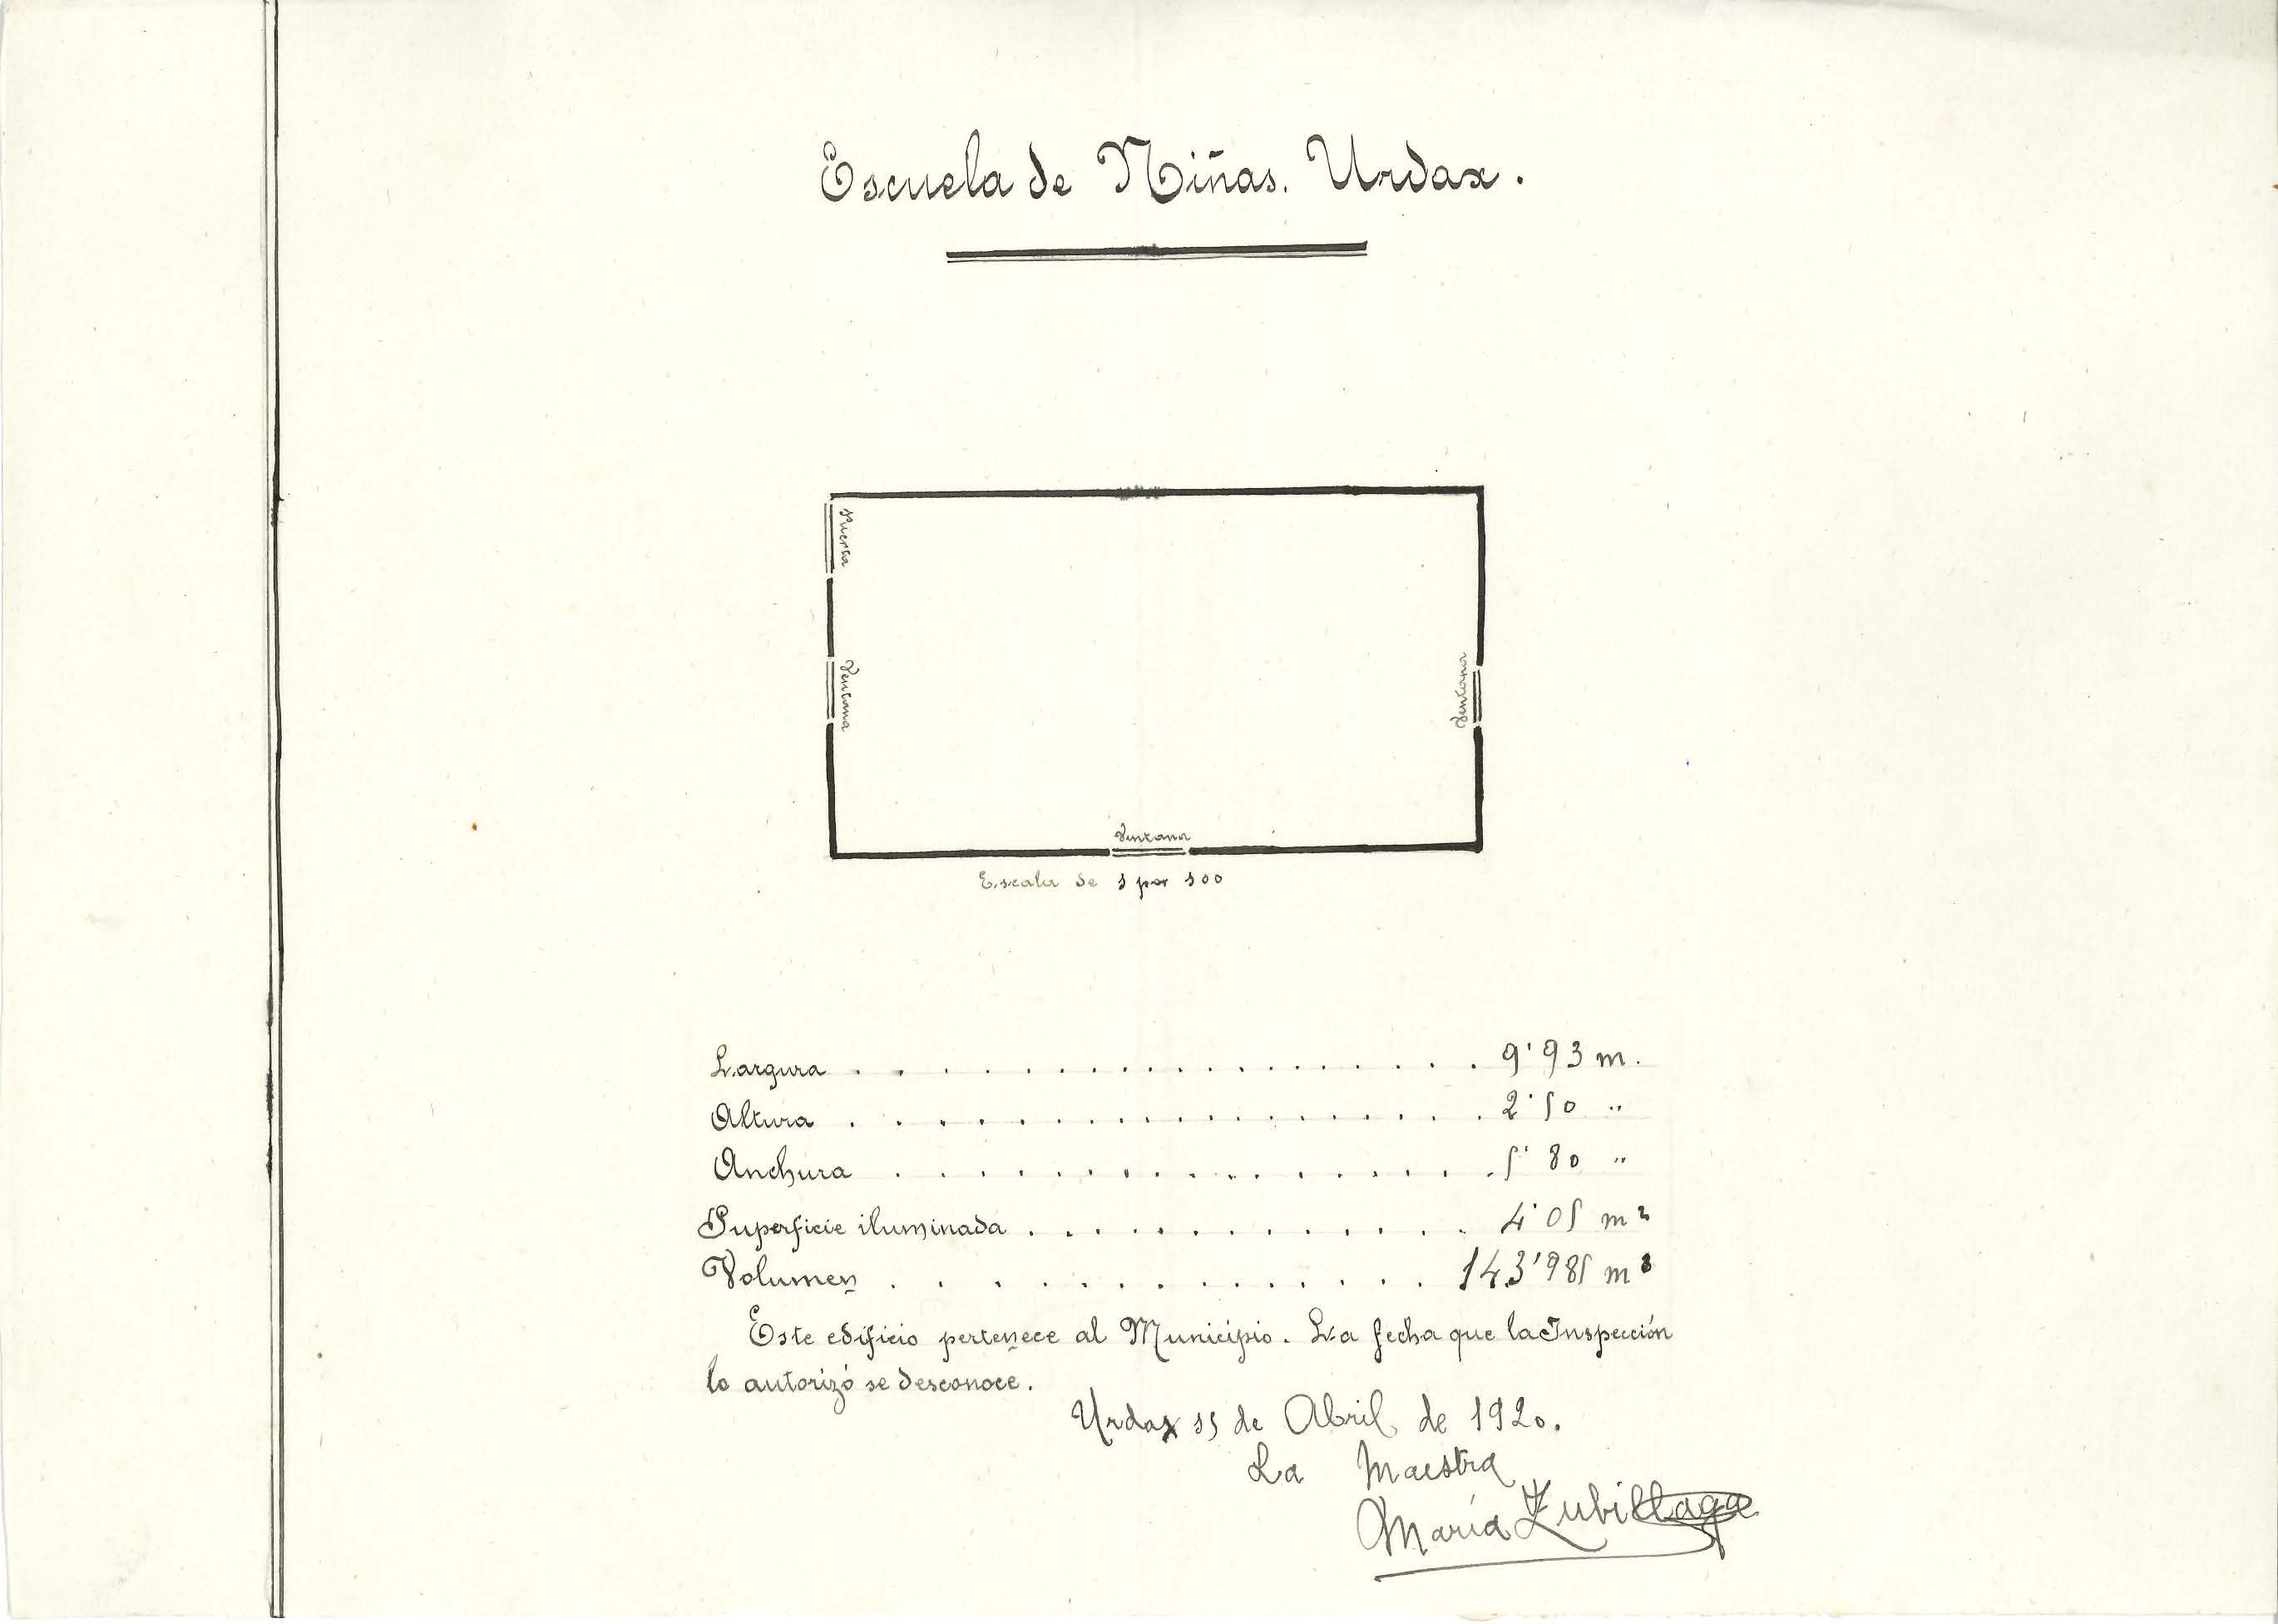 Escuela de Niñas. Urdax.
Puerta
Ventana
Ventana
Ventana
Escala de 1 por 100
Largura . . . . . . . . . . . . . . . . 9'93 m.
Altura . . . . . . . . . . . . . . . . 2'50 "
Anchura . . . . . . . . . . . . . . . 5'80 "
Superficie iluminada . . . . . . . . . . . 4'05 m²
Volumen . . . . . . . . . . . . . . 143'985 m³
Este edificio pertenece al Municipio. La fecha que la Inspección
lo autorizó se desconoce.
Urdax 15 de Abril de 1920.
La Maestra
María Zubillaga